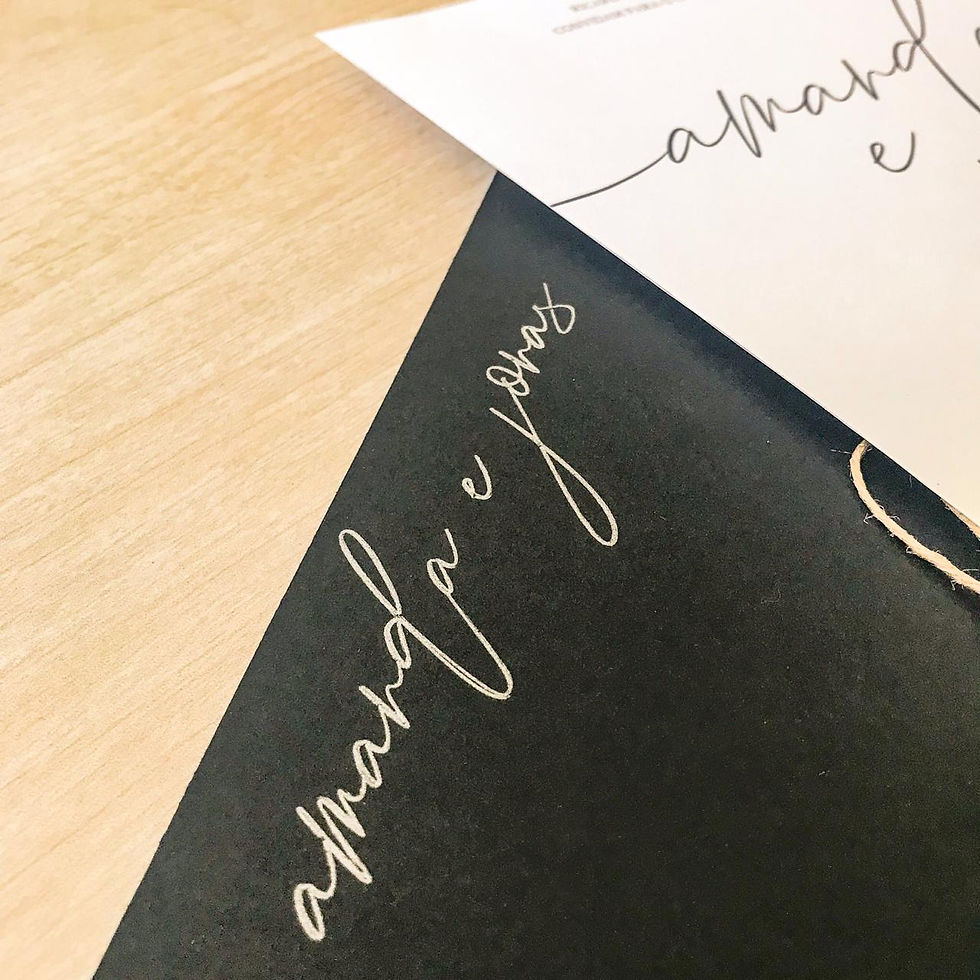 amand
e
amanda e jonas